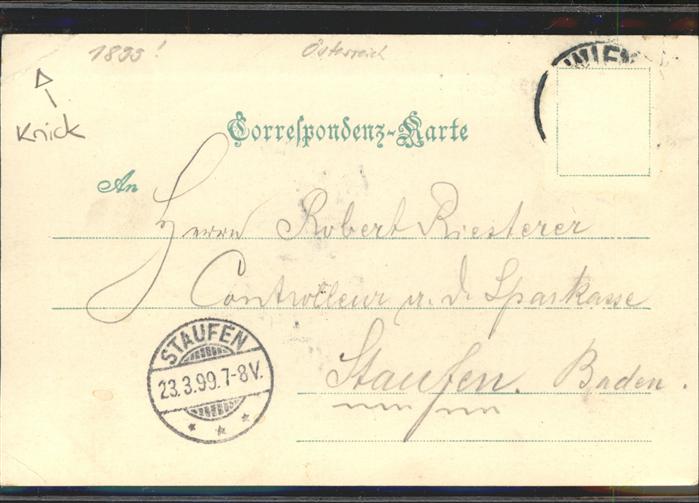 1899! Österreich
WIEN
Knick
Correspondenz-Karte
An
Herrn Robert Riesterer
Controlleur a. d. Sparkasse
Staufen. Baden.
STAUFEN
23.3.99.7-8V.